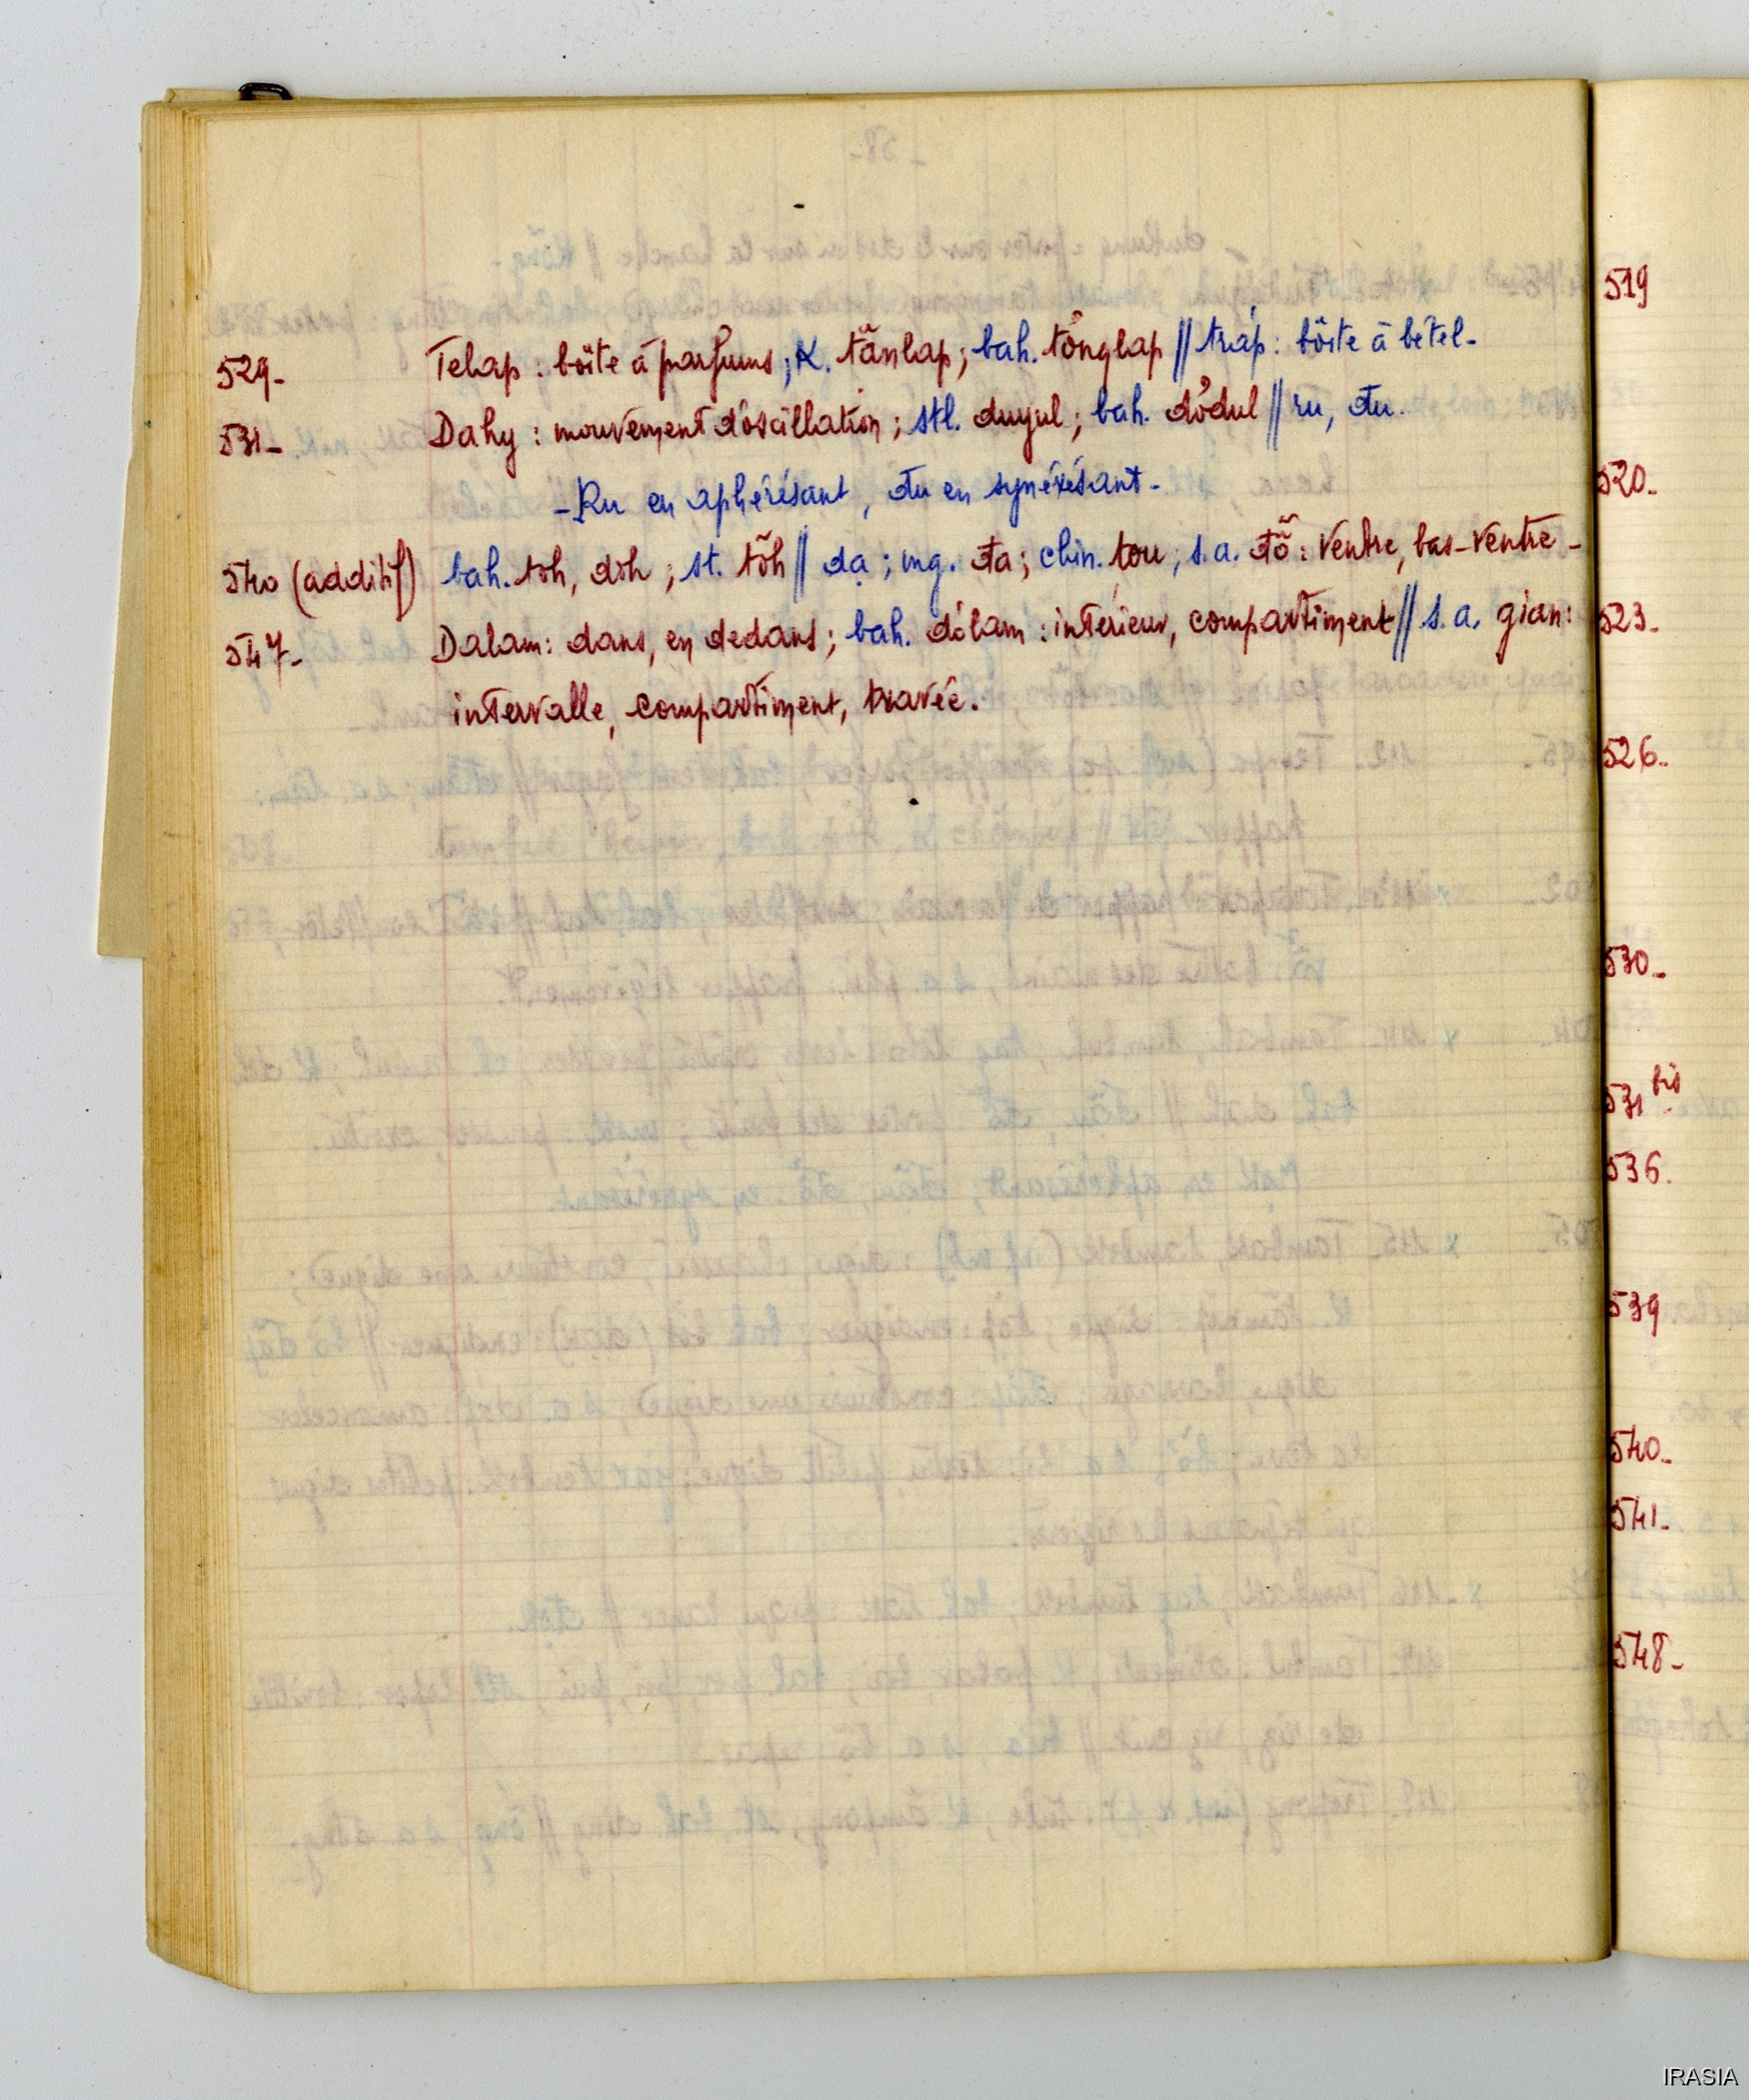 529- Telap : boîte à parfums ; K. tănlap ; bah. tơ̆nglap // tráp : boîte à bétel-
531- Dahy : mouvement d'oscillation ; stl. duyul ; bah. dơ̆dul // ru, đu.
- Ru en aphérésant, đu en synérésant-
540 (additif) bah. toh, doh ; st. tõh // dạ ; mg. đa ; chin. tou ; s.a. đỗ : ventre, bas-ventre-
547- Dalam : dans, en dedans ; bah. dơ̆lam : intérieur, compartiment // s.a. gian :
intervalle, compartiment, travée.
519
520-
523-
526-
530-
531 bis
536.
539
540-
541-
548-
IRASIA